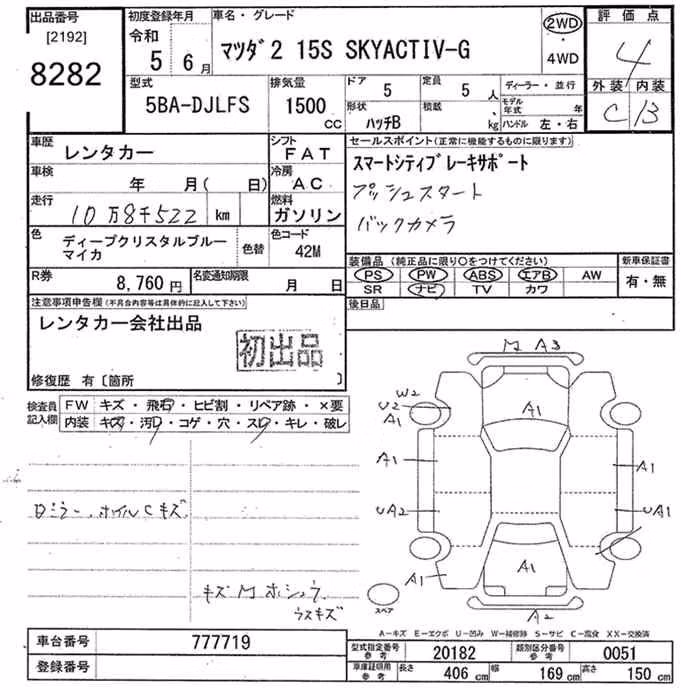 出品番号
[2192]
8282
初度登録年月
令和
5 6月
車名・グレード
マツダ2 15S SKYACTIV-G
2WD
・
4WD
評価点
4
外装 内装
C B
型式
5BA-DJLFS
排気量
1500
CC
ドア
5
定員
5人
形状
ハッチB
積載
kg
ディーラー・並行
モデル年式 年
ハンドル 左・右
車歴
レンタカー
シフト
FAT
車検
年 月( 日)
冷房
AC
走行
10万8千522 km
燃料
ガソリン
色
ディープクリスタルブルー
マイカ
色替
色コード
42M
R券
8,760円
名変通知期限
月 日
セールスポイント(正常に機能するものに限ります)
スマートシティブレーキサポート
プッシュスタート
バックカメラ
装備品(純正品に限り○をつけてください)
PS PW ABS エアB AW
SR ナビ TV カワ
新車保証書
有・無
後日品
注意事項申告欄(不具合内容等は具体的に記入して下さい)
レンタカー会社出品
初出品
修復歴 有〔箇所 〕
検査員
記入欄
FW キズ・飛石・ヒビ割・リペア跡・×要
内装 キズ・汚レ・コゲ・穴・スレ・キレ・破レ
ミラー、ホイルCキズ
キズ
M A3
W2
U2
A1
A1
A1
A1
UA2
UA1
A1
A1
A2
スペア
A-キズ E-エクボ U-凹み W-補修跡 S-サビ C-腐食 XX-交換済
車台番号
777719
登録番号
型式指定番号
参考
20182
類別区分番号
参考
0051
車庫証明用
参考
長さ 406cm
幅 169cm
高さ 150cm